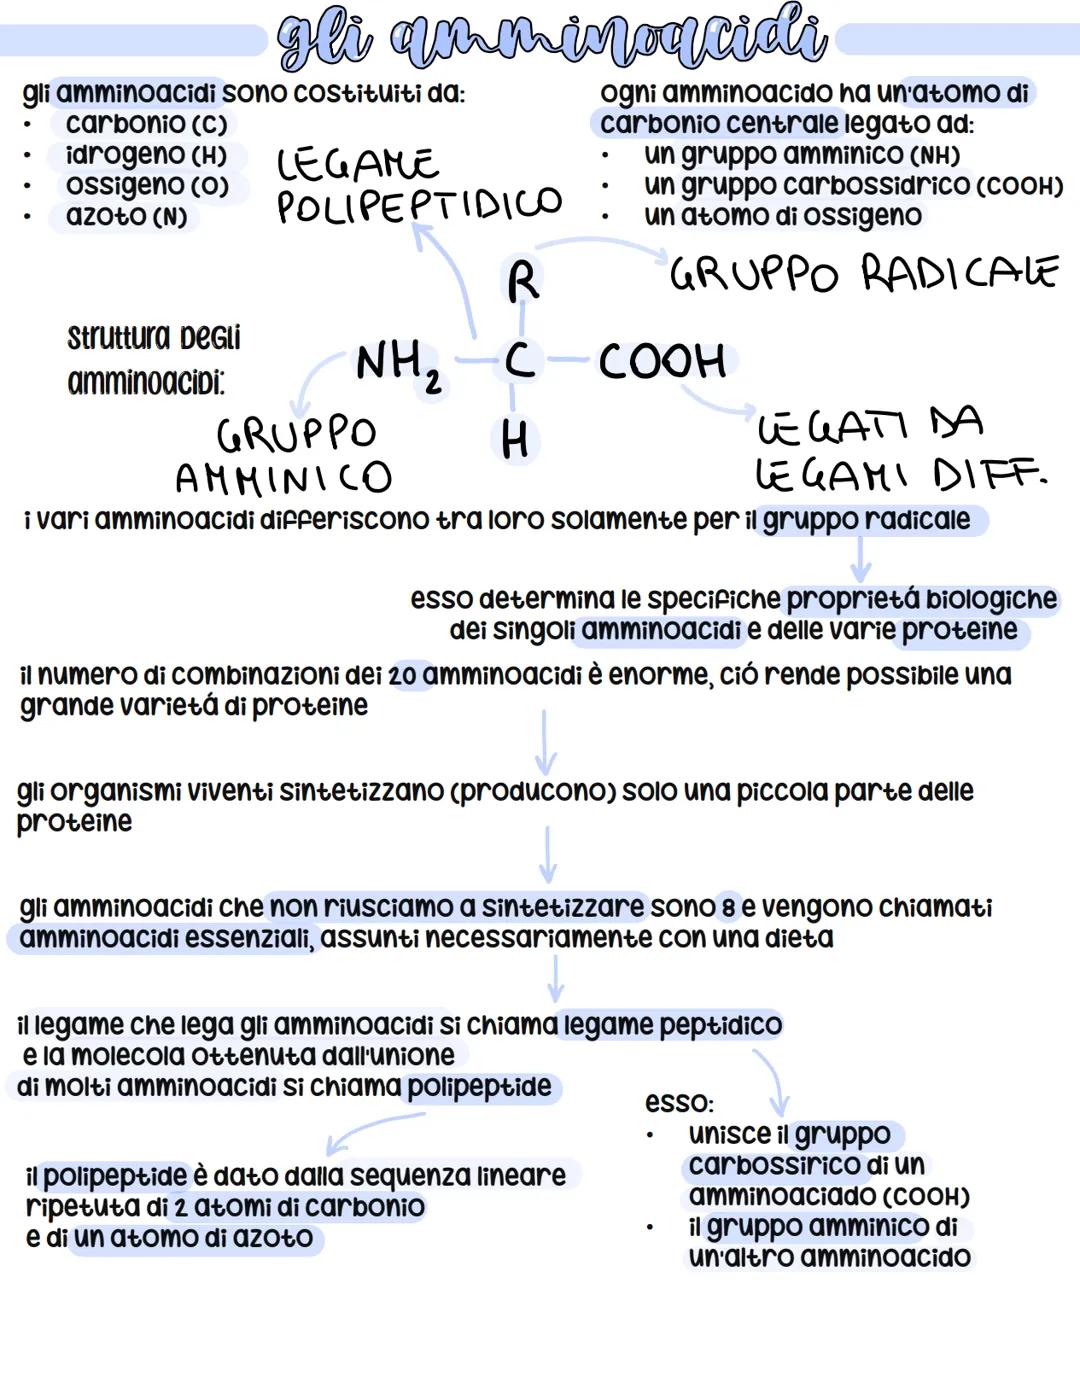 gli amminoacidi
gli amminoacidi sono costituiti da:
• carbonio (C)
• idrogeno (H)
• ossigeno (O)
• azoto (N)
ogni amminoacido ha un'atomo di
carbonio centrale legato ad:
• un gruppo amminico (NH)
• un gruppo carbossidrico (COOH)
• un atomo di ossigeno
LEGAME
POLIPEPTIDICO
R
GRUPPO RADICALE
struttura degli
amminoacidi:
NH2 — C — COOH
H
GRUPPO
AMMINICO
LEGATI DA
LEGAMI DIFF.
i vari amminoacidi differiscono tra loro solamente per il gruppo radicale
esso determina le specifiche proprietá biologiche
dei singoli amminoacidi e delle varie proteine
il numero di combinazioni dei 20 amminoacidi è enorme, ció rende possibile una
grande varietá di proteine
gli organismi viventi sintetizzano (producono) solo una piccola parte delle
proteine
gli amminoacidi che non riusciamo a sintetizzare sono 8 e vengono chiamati
amminoacidi essenziali, assunti necessariamente con una dieta
il legame che lega gli amminoacidi si chiama legame peptidico
e la molecola ottenuta dall'unione
di molti amminoacidi si chiama polipeptide
il polipeptide è dato dalla sequenza lineare
ripetuta di 2 atomi di carbonio
e di un atomo di azoto
esso:
• unisce il gruppo
carbossirico di un
amminoaciado (COOH)
• il gruppo amminico di
un'altro amminoacido